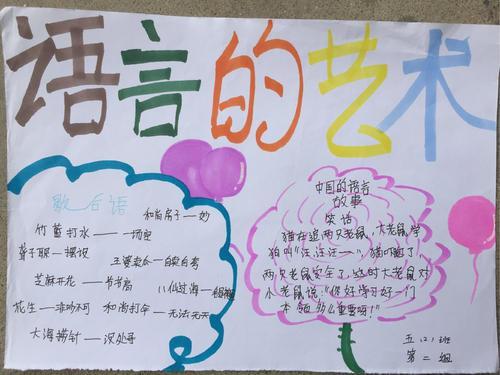 语言的艺术
歇后语
和尚房子——妙
竹篮打水——一场空
摆设
王婆卖瓜——自卖自夸
芝麻开花——节节高
八仙过海——
花生——非吵不可
和尚打伞——无法无天
大海捞针——深处寻
中国的语言
故事
笑话
猫在追两只老鼠,大老鼠学
狗叫"汪汪汪——",猫吓跑了,
两只老鼠安全了,这时大老鼠对
小老鼠说:"你好学习好一门
本领多么重要啊!"
五(2)班
第二组